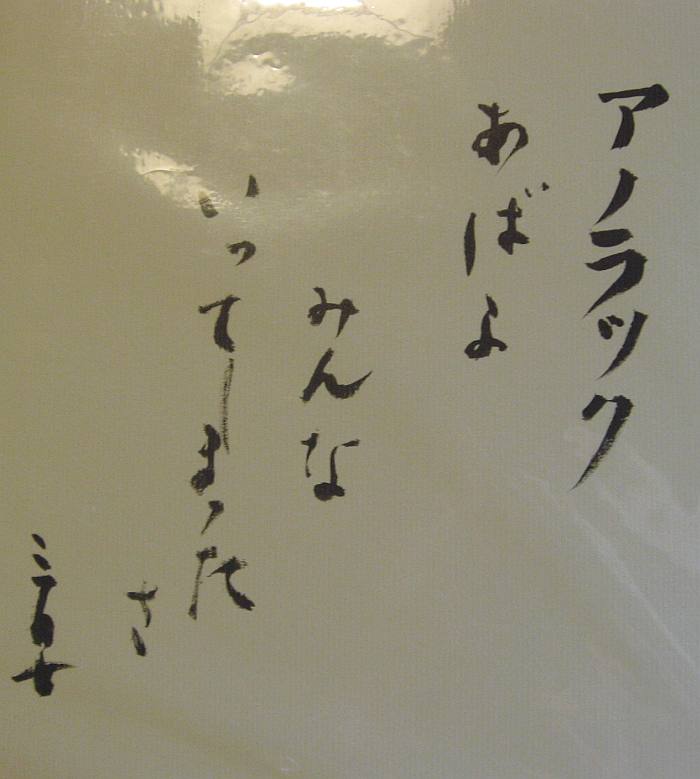 アノラック
あばよ
みんな
いってしまった
さ